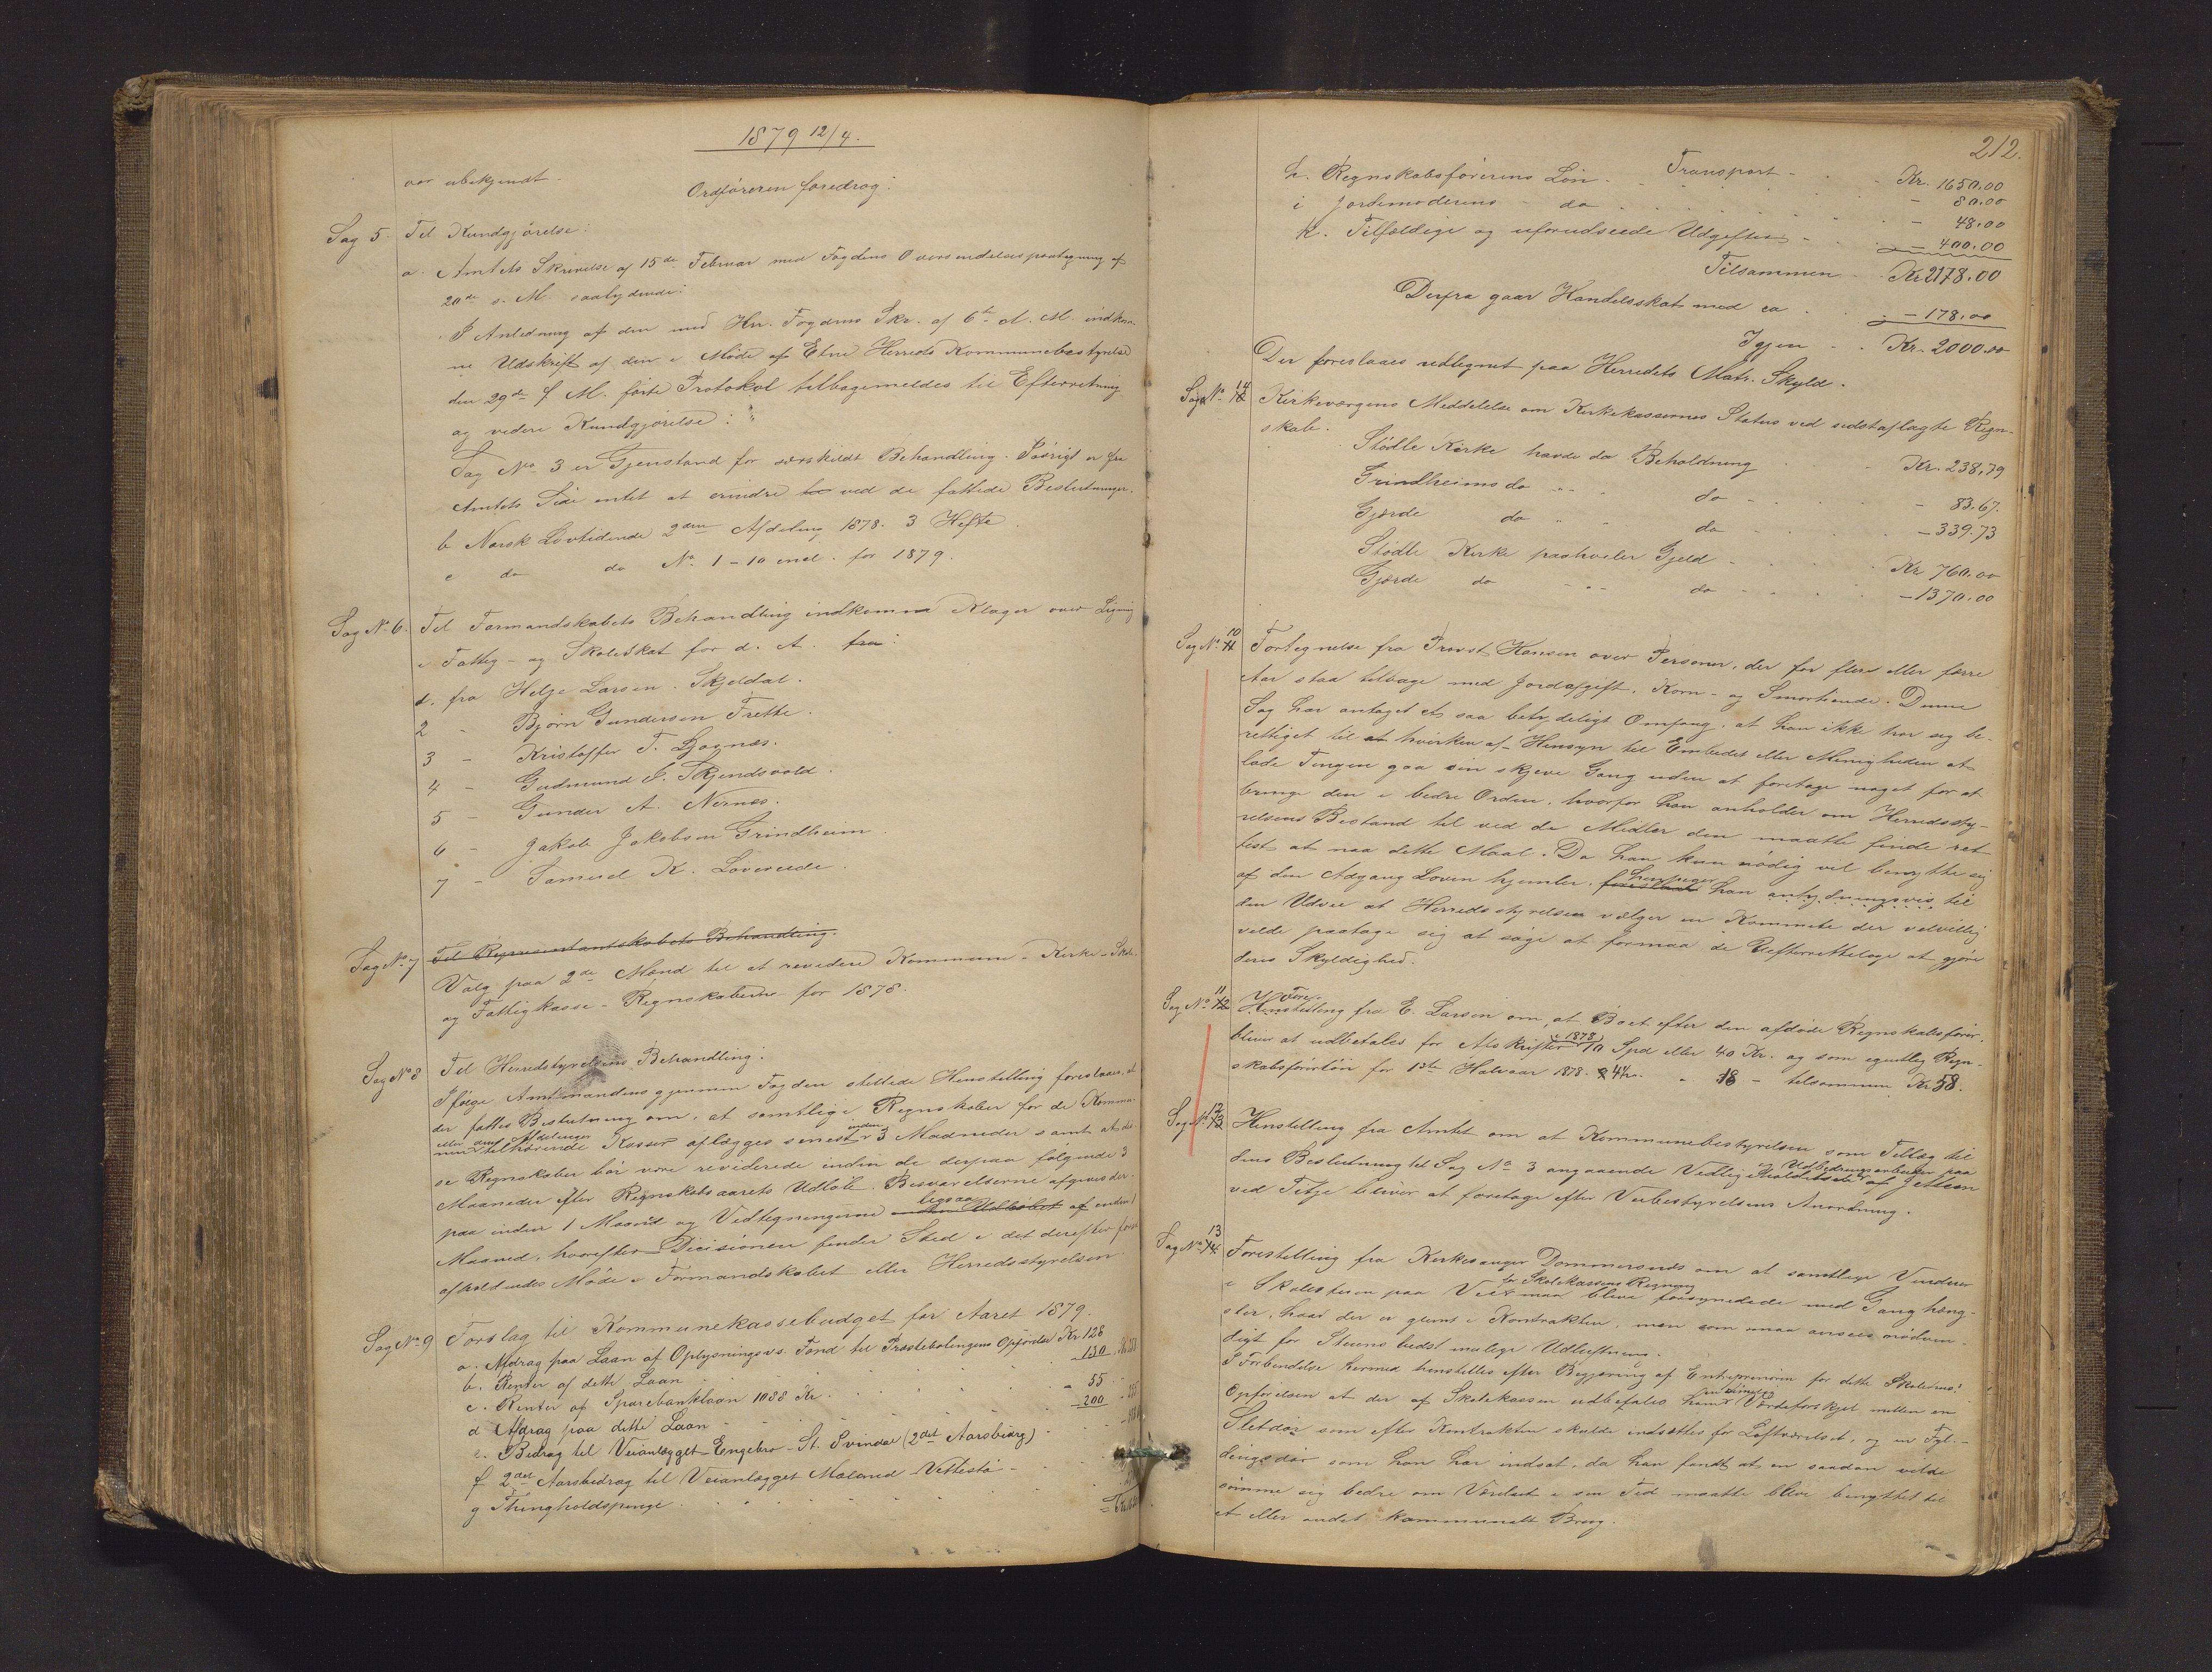 1879 12/4.
var ubekjendt.
Ordføreren foredrog:
Sag 5. Til Kundgjørelse:
a. Amtets Skrivelse af 15de Februar med Fogdens Oversendelsespaategning af
20de s. M. saalydende:
"I Anledning af den med Hr. Fogdens Skr. af 6te d. M. indkom-
ne Udskrift af den i Møde af Etne Herreds Kommunebestyrelse
den 29de f. M. førte Protokol tilbagemeldes til Efterretning
og videre Kundgjørelse:"
Sag No 3 er Gjenstand for særskildt Behandling. Iøvrigt er fra
Amtets Side intet at erindre ved de fattede Beslutninger.
b Norsk Lovtidende 2den Afdeling 1878. 3 Hefte.
c do do No. 1-10 incl. for 1879.
Sag No. 6. Til Formandskabets Behandling indkomne Klager over Ligning
i Fattig- og Skoleskat for d. A. fra:
1. fra Helge Larsen Skjeldal.
2 - Bjørn Gundersen Frette.
3 - Kristoffer T. Ljognæs.
4 - Gudmund S. Skjendsvold.
5 - Gunder A. Nernæs.
6 - Jakob Jakobsen Grindheim.
7 - Samuel K. Lovereide.
Sag No 7 Til Repræsentantskabets Behandling.
Valg paa 2de Mænd til at revidere Kommune- Kirke- Skole-
og Fattigkasse-Regnskaberne for 1878.
Sag No 8 Til Herredstyrelsens Behandling:
Ifølge Amtmandens gjennem Fogden stillede Henstilling foreslaaes, at
der fattes Beslutning om, at samtlige Regnskaber for de Kommu-
nen eller dens Afdelinger tilhørende Kasser aflægges senest inden 3 Maaneder samt at dis-
se Regnskaber bør være reviderede inden de derpaa følgende 3
Maaneder efter Regnskabsaarets Udløb. Besvarelserne afgives der-
paa inden 1 Maaned og Vedtegningerne ligesaa inden Udløbet af enden 1
Maaned, hvorefter Decisionen finder Sted i det derefter først
afholdendes Møde i Formandskabet eller Herredsstyrelsen.
Sag No 9 Forslag til Kommunekassebudget for Aaret 1879.
a. Afdrag paa Laan af Oplysningsvs. Fond til Præsteboligens Opførelse Kr. 128
b. Renter af dette Laan - 130
c. Renter af Sparebanklaan 1088 Kr. - 55
d Afdrag paa dette Laan - 200
e. Bidrag til Veianlægget Engebro - St. Svindal (2det Aarsbidrag)
f 2det Aarsbidrag til Veianlægget Maland-Vettestø
g Thingholdspenge
212.
Transport - Kr. 1650.00
h. Regnskabsførerens Løn - 80.00
i Jordemoderens do - 48.00
k. Tilfældige og uforudseede Udgifter - 400.00
Tilsammen - Kr 2178.00
Derfra gaar Handelsskat med ca - 178.00
Igjen - Kr. 2000.00
Der foreslaaes udlignet paa Herredets Matr. Skyld.
Sag No. 14 Kirkeværgens Meddelelse om Kirkekassernes Status ved sidstaflagte Regn-
skab.
Stødle Kirke havde da Beholdning Kr. 238,79
Grindheims do do - 83.67.
Gjerde do do - 339.73
Stødle Kirke paahviler Gjeld Kr 760.00
Gjerde do do - 1370.00
Sag No. 10 Fortegnelse fra Provst Hansen over Personer, der for flere eller færre
Aar staa tilbage med Jordafgift, Korn- og Smørtiende. Denne
Sag har antaget et saa betydeligt Omfang, at han ikke tror sig be-
rettiget til at hverken af Hensyn til Embedet eller Menigheden at
lade Tingen gaa sin skjeve Gang uden at foretage noget for at
bringe den i bedre Orden, hvorfor han anholder om Herredssty-
relsens Bistand til ved de Midler den maatte finde ret-
test at naa dette Maal. Da han kun nødig vil benytte sig
af den Adgang Loven hjemler, henpeger han antydningsvis til
den Udvei at Herredsstyrelsen vælger en Kommite der velvillig
vilde paatage sig at søge at formaa de Uefterrettelige at gjøre
deres Skyldighed.
Sag No 11 Forestilling fra E. Larsen om, at Boet efter den afdøde Regnskabsfører
bliver at udbetales for Afskrifter i 1878 10 Spd eller 40 Kr. og som egentlig Regn-
skabsførerløn for 1ste Halvaar 1878. 4½ " 18 - tilsammen Kr 58.
Sag No. 12 Henstilling fra Amtet om at Kommunebestyrelsen som Tillæg til
dens Beslutning til Sag No 3 angaaende Vedligeholdelse Udbedringsarbeider paa af Jetteen
ved Tetje bliver at foretage efter Veibestyrelsens Anordning.
Sag No. 13 Forestilling fra Kirkesanger Dommersnes om at samtlige Vinduer
i Skolestuen paa Vik maa blive for Skolekassens Regning forsynede med Ganghæng-
sler, hvad der er glemt i Kontrakten, men som maa ansees nødven-
digt for Stuens bedst mulige Udluftning.
I Forbindelse hermed henstilles efter Begjæring af Entreprenøren for dette Skolehus'
Opførelsen at der af Skolekassen udbetales ham en Værdiforskjel mellem en
Sletdør som efter Kontrakten skulde indsættes for Loftværelset, og en Fyl-
dingsdør som han har indsat, da han fandt at en saadan vilde
sømme sig bedre om Værelset i sin Tid maatte blive benyttet til
et eller andet kommunalt Brug.